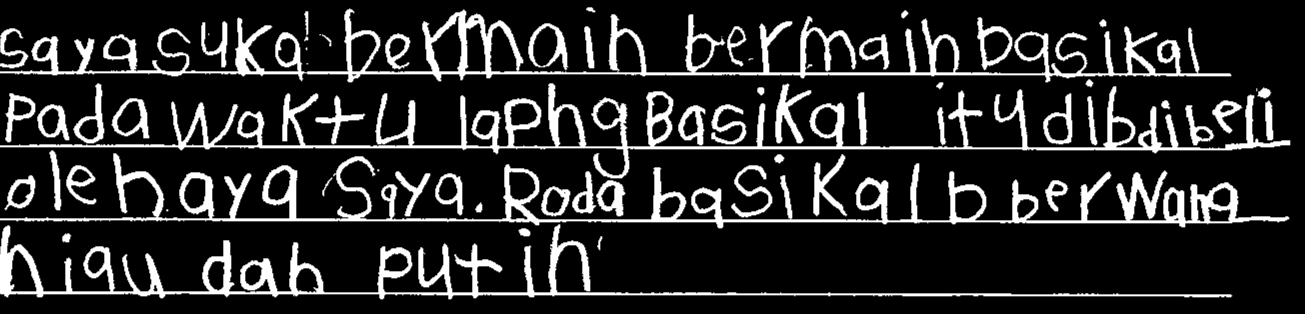 saya suka bermain bermain basikal
Pada waktu laphg Basikal itu dibdibeli
oleh aya Saya. Roda basikal b berwana
hiau dah putih